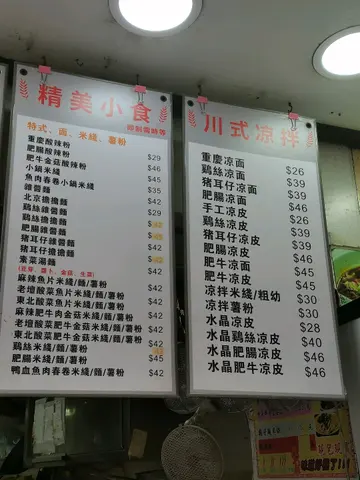 精美小食
特式、面、米綫、薯粉
重慶酸辣粉 $29
肥腸酸辣粉 $46
肥牛金菇酸辣粉 $45
小鍋米綫
魚肉春卷小鍋米綫
雜醬麵
北京擔擔麵
鷄絲雜醬麵
鷄絲擔擔麵
肥腸雜醬麵
豬耳仔雜醬麵
豬耳仔擔擔麵
素菜湯麵
麻辣魚片米綫/麵/薯粉 $42
老壇酸菜魚片米綫/麵/薯粉 $42
東北酸菜魚片米綫/麵/薯粉 $42
麻辣肥牛肉金菇米綫/麵/薯粉 $42
老壇酸菜肥牛金菇米綫/麵/薯粉 $42
東北酸菜肥牛金菇米綫/麵/薯粉 $42
鷄絲米綫/麵/薯粉
肥腸米綫/麵/薯粉 $45
鴨血魚肉春卷米綫/麵/薯粉 $42
川式凉拌
重慶凉面 $26
鷄絲凉面 $39
豬耳仔凉面 $39
肥腸凉面 $46
手工凉皮 $26
鷄絲凉皮 $39
豬耳仔凉皮 $39
肥腸凉皮 $46
肥牛凉面 $45
肥牛凉皮 $45
凉拌米綫/粗幼 $30
凉拌薯粉 $30
水晶凉皮 $28
水晶鷄絲凉皮 $40
水晶肥腸凉皮 $46
水晶肥牛凉皮 $46